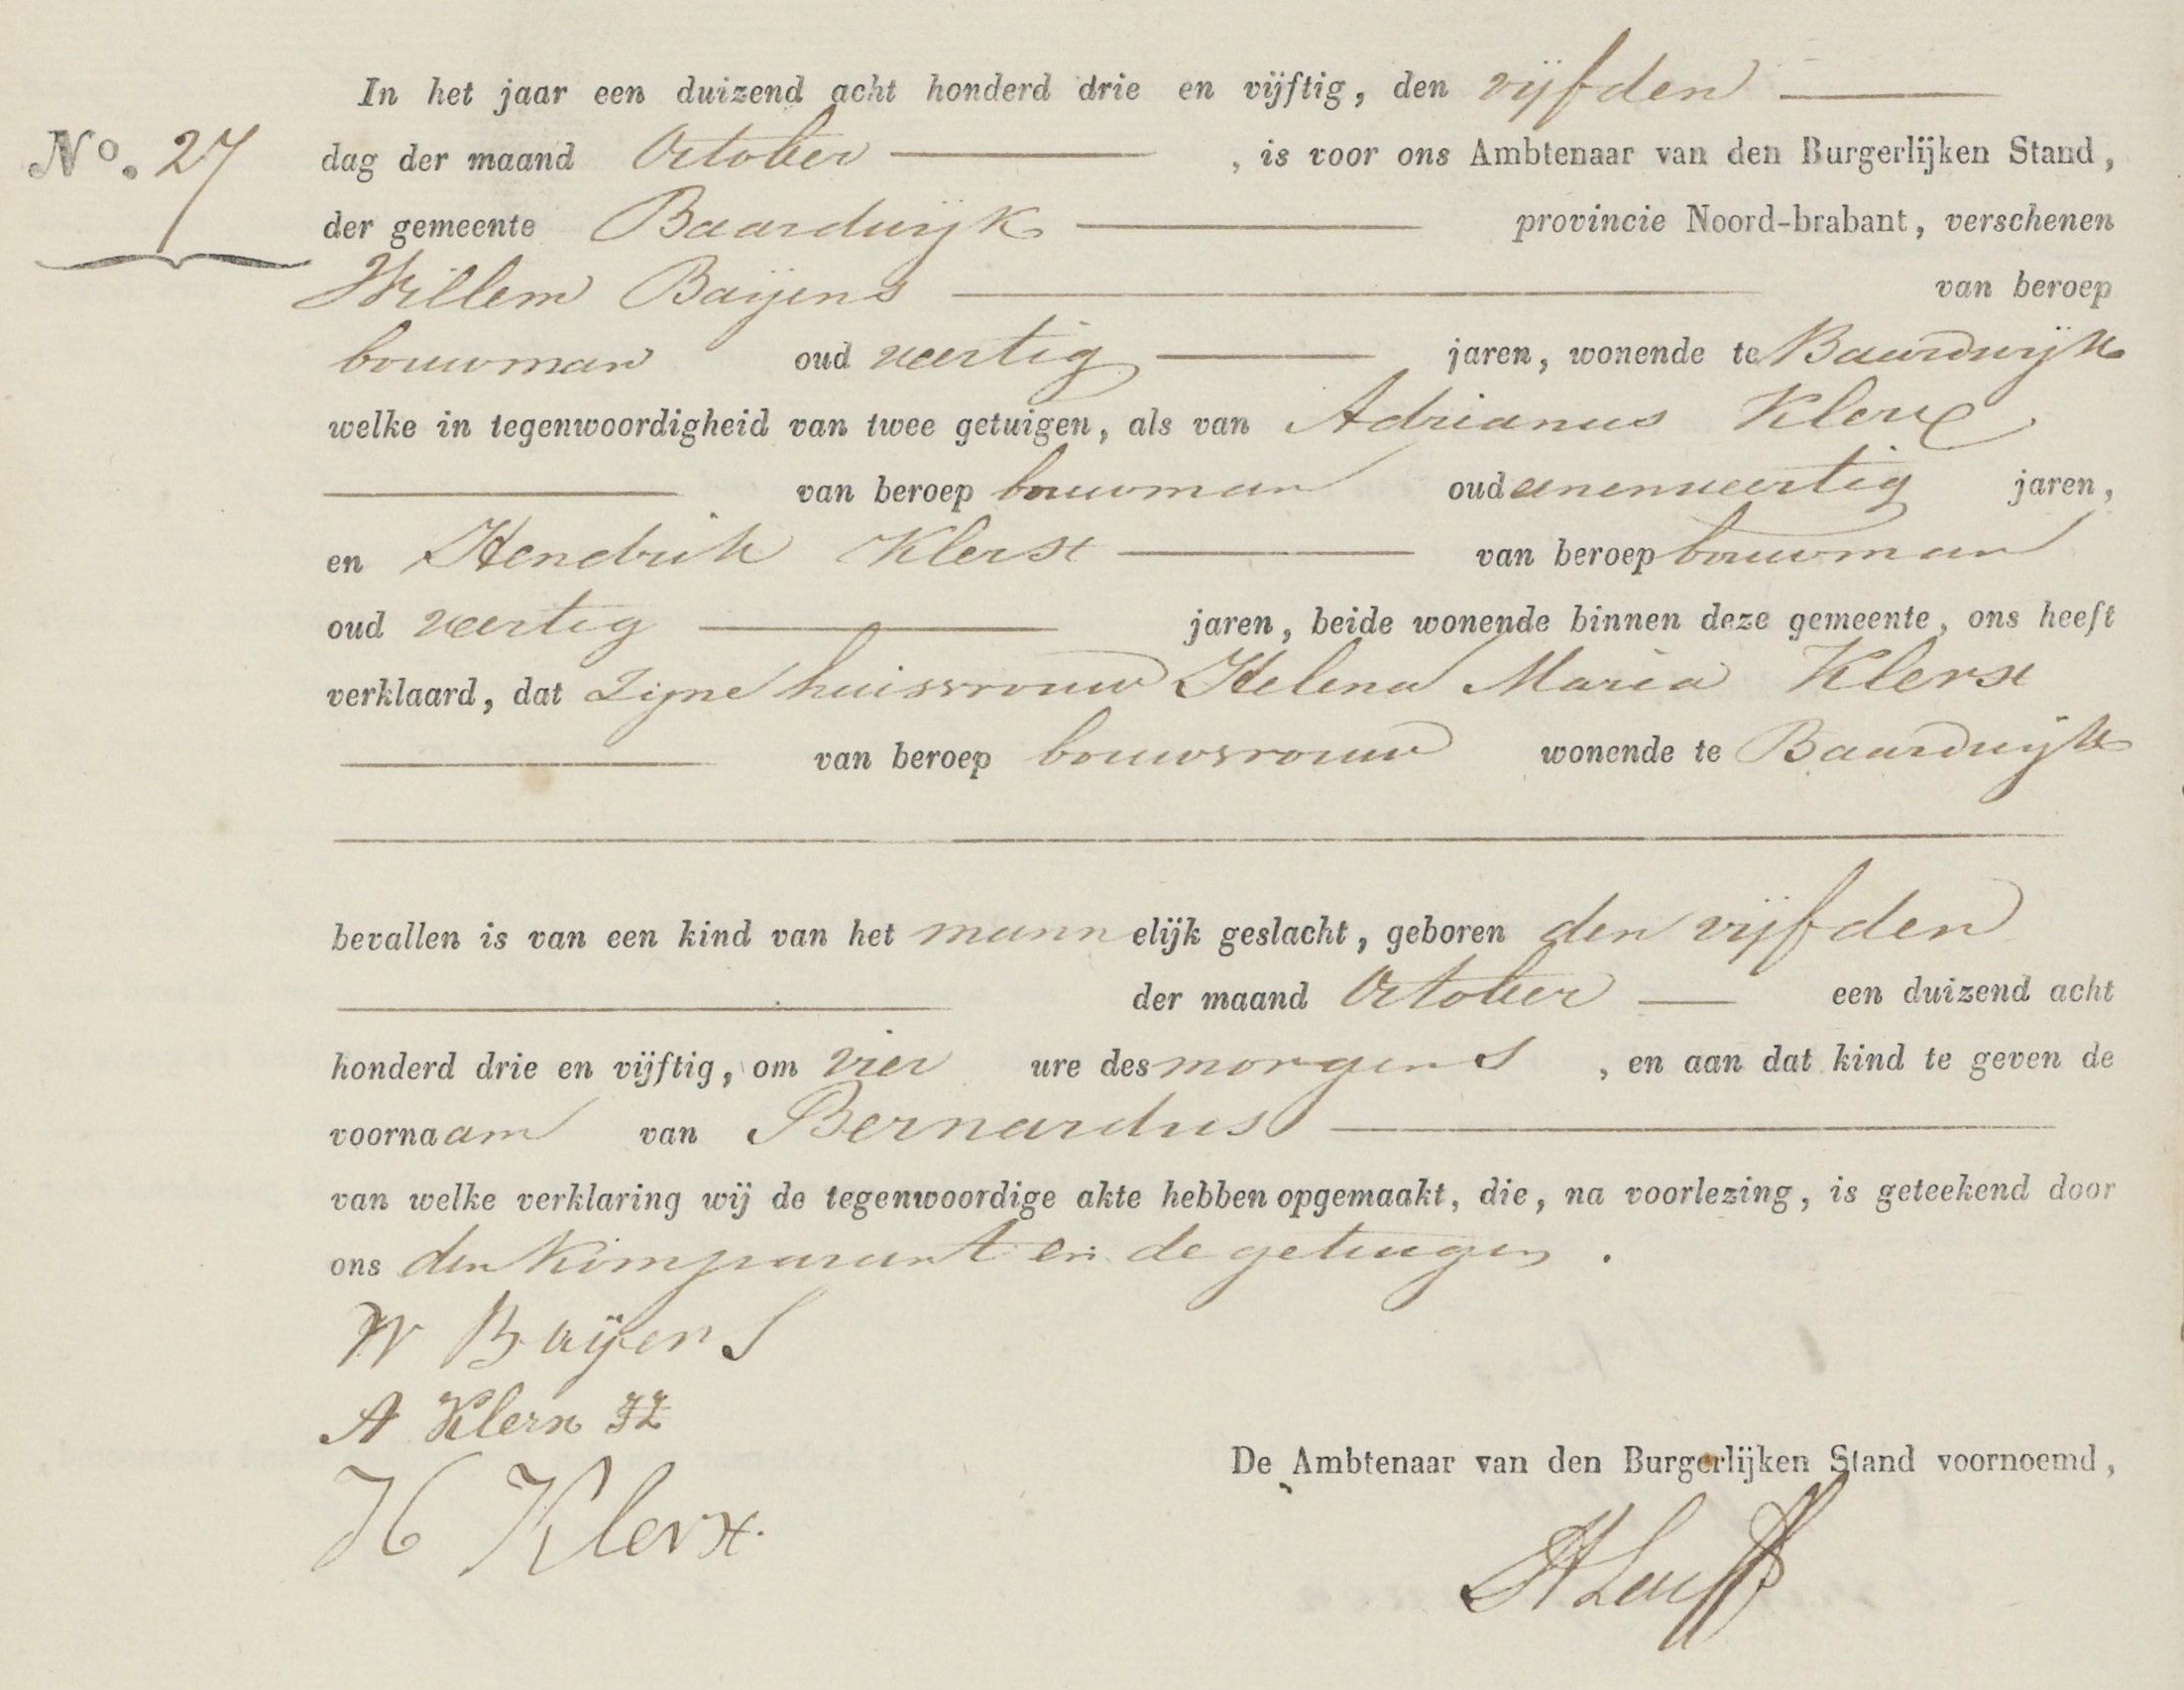 In het jaar een duizend acht honderd drie en vijftig, den vijfden
No. 27
dag der maand October , is voor ons Ambtenaar van den Burgerlijken Stand,
der gemeente Baardwijk provincie Noord-brabant, verschenen
Willem Baijens van beroep
bouwman oud veertig jaren, wonende te Baardwijk
welke in tegenwoordigheid van twee getuigen, als van Adrianus Klerx
van beroep bouwman oud eenenveertig jaren,
en Hendrik Klerx van beroep bouwman
oud veertig jaren, beide wonende binnen deze gemeente, ons heeft
verklaard, dat Zijne huisvrouw Helena Maria Klerx
van beroep bouwvrouw wonende te Baardwijk
bevallen is van een kind van het mannelijk geslacht, geboren den vijfden
der maand October een duizend acht
honderd drie en vijftig, om vier ure des morgens , en aan dat kind te geven de
voornaam van Bernardus
van welke verklaring wij de tegenwoordige akte hebben opgemaakt, die, na voorlezing, is geteekend door
ons den Komparant en de getuigen .
W Baijens
A Klerx
H Klerx.
De Ambtenaar van den Burgerlijken Stand voornoemd,